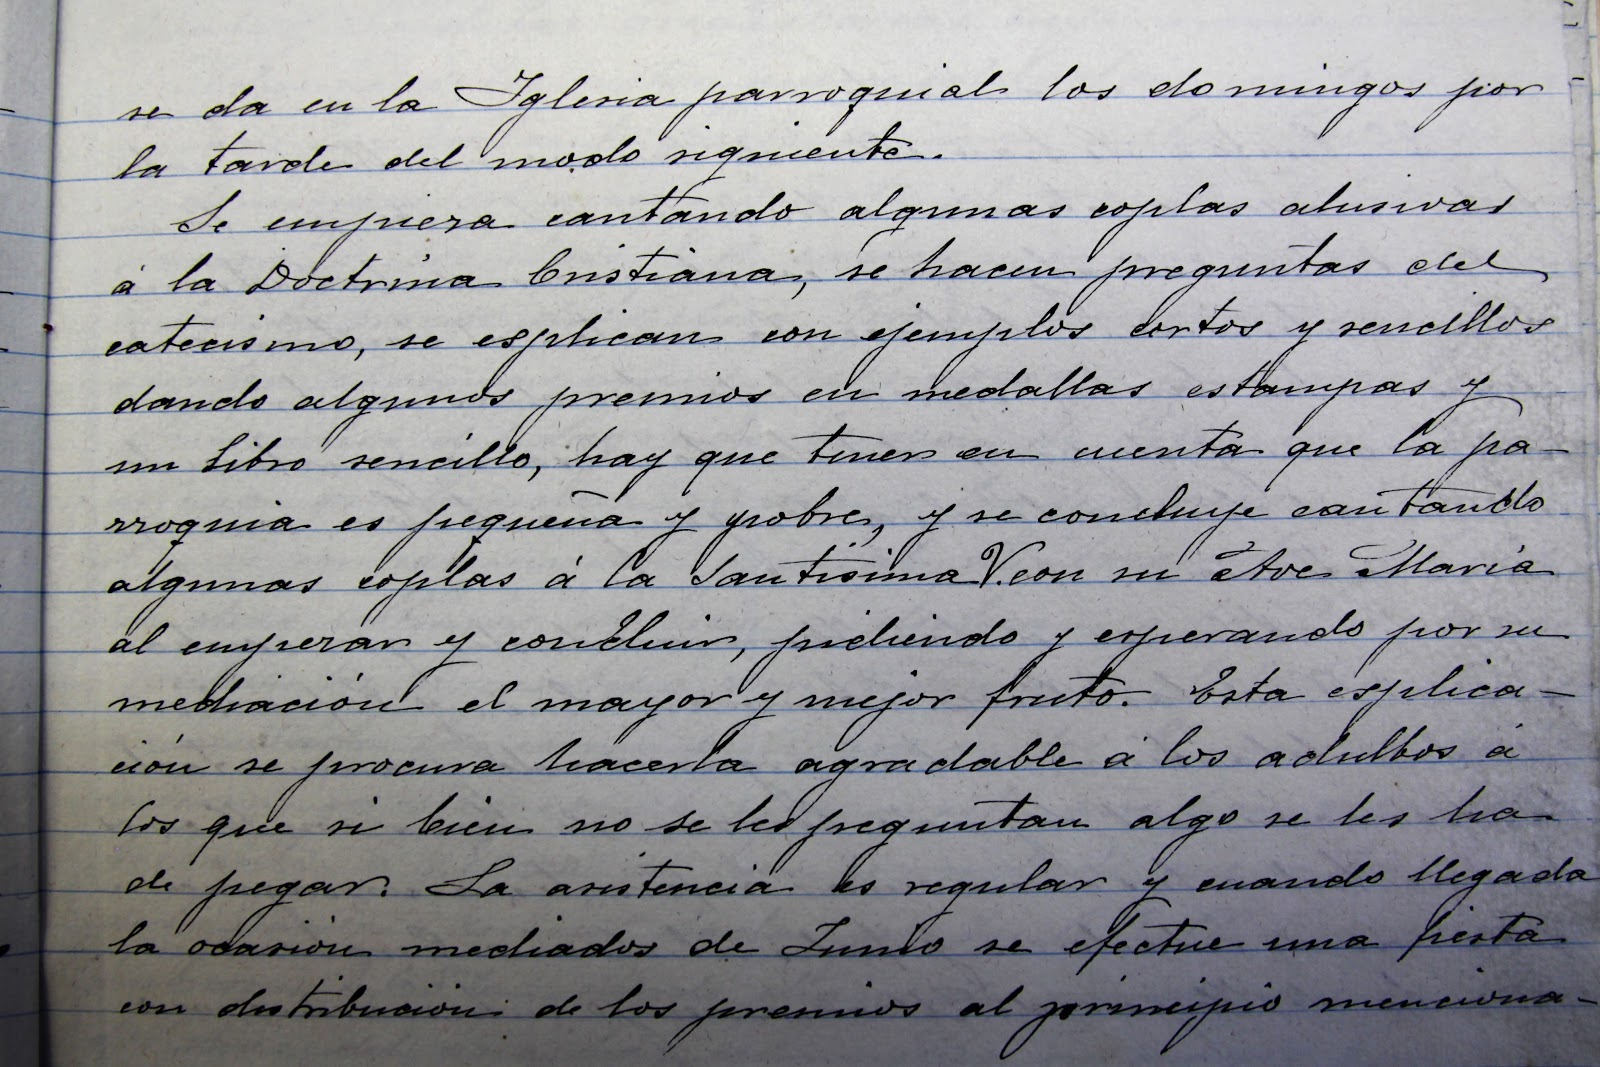 se da en la Iglesia parroquial los domingos por
la tarde del modo siguiente.
Se empieza cantando algunas coplas alusivas
á la Doctrina Cristiana, se hacen preguntas del
catecismo, se esplican con ejemplos cortos y sencillos
dando algunos premios en medallas estampas y
un libro sencillo, hay que tener en cuenta que la pa-
rroquia es pequeña y pobre, y se concluye cantando
algunas coplas á la Santísima V. con su Ave María
al empezar y concluir, pidiendo y esperando por su
mediación el mayor y mejor fruto. Esta esplica-
ción se procura hacerla agradable á los adultos á
los que si bien no se les preguntan algo se les ha
de pegar. La asistencia es regular y cuando llegada
la ocasión mediados de Junio se efectue una fiesta
con distribución de los premios al principio menciona-